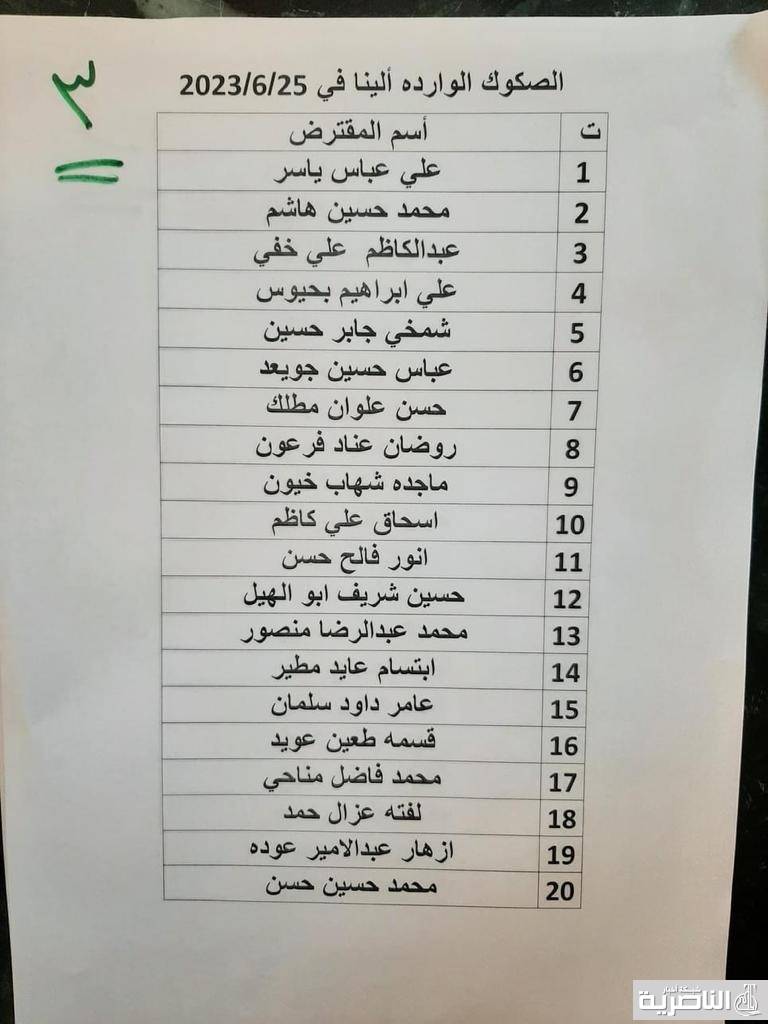 ٣
الصكوك الوارده ألينا في 2023/6/25
ت أسم المقترض
1 علي عباس ياسر
2 محمد حسين هاشم
3 عبدالكاظم علي خفي
4 علي ابراهيم بحيوس
5 شمخي جابر حسين
6 عباس حسين جويعد
7 حسن علوان مطلك
8 روضان عناد فرعون
9 ماجده شهاب خيون
10 اسحاق علي كاظم
11 انور فالح حسن
12 حسين شريف ابو الهيل
13 محمد عبدالرضا منصور
14 ابتسام عايد مطير
15 عامر داود سلمان
16 قسمه طعين عويد
17 محمد فاضل مناحي
18 لفته عزال حمد
19 ازهار عبدالامير عوده
20 محمد حسين حسن
شبكة أخبار
الناصرية